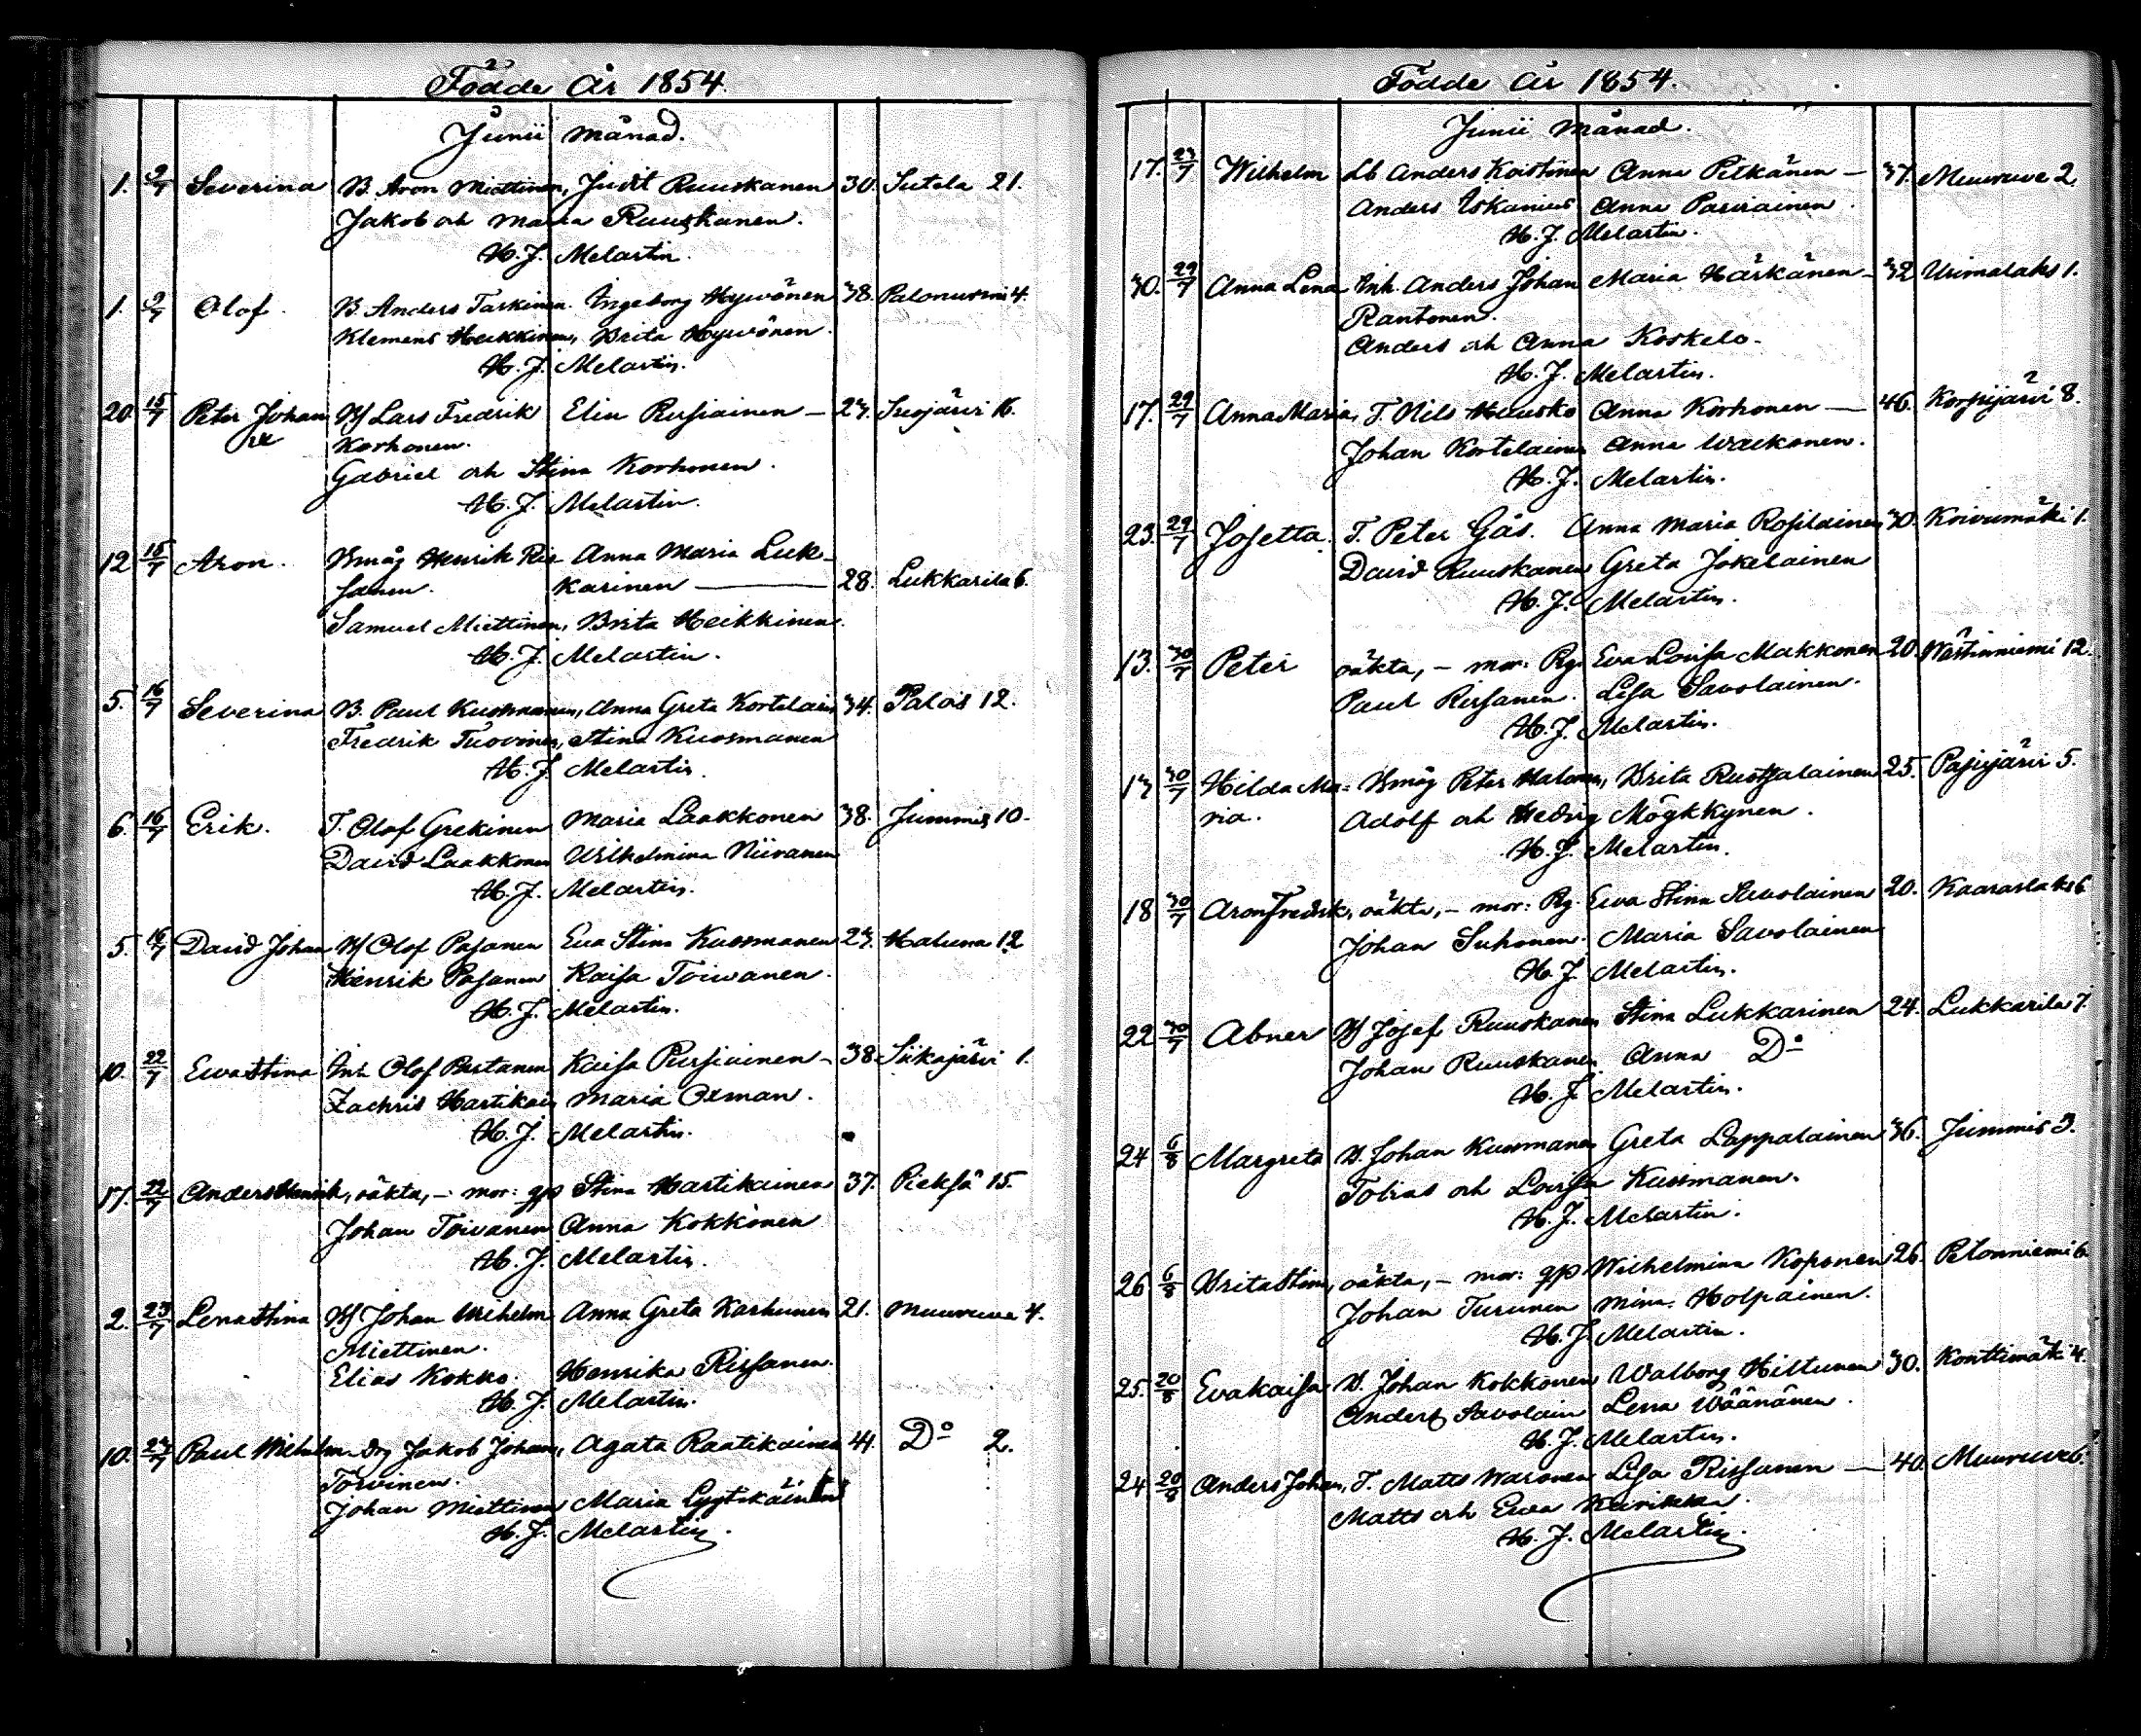 Födde År 1854.
Junii månad.
1. 2/7 Severina B. Aron Miettinen, Judit Ruuskanen 30. Sutela 21.
Jakob och Maria Ruuskanen.
H. J. Melartin.
1. 2/7 Olof. B. Anders Tarkinen. Ingeborg Hyvönen 38. Palonurmi 4.
Klemens Heikkinen, Brita Hyvönen.
H. J. Melartin.
20. 15/7 Peter Johan Lars Fredrik Elin Pursiainen — 23. Siojärvi 16.
Korhonen.
Gabriel och Stina Korhonen.
H. J. Melartin.
12 15/7 Aron. Bmåg Henrik Ris- Anna Maria Luk-
sanen. karinen — 28. Lukkarila 6.
Samuel Miettinen, Brita Heikkinen.
H. J. Melartin.
5. 16/7 Severina B. Paul Kuosmanen, Anna Greta Kortelain 34. Palois 12.
Fredrik Tuovinen, Stina Kuosmanen
H. J. Melartin.
6. 16/7 Erik. T. Olof Grekinen Maria Laakkonen 38. Jummis 10.
David Laakkonen Wilhelmina Niiranen
H. J. Melartin.
5. 16/7 David Johan Olof Pasanen Eva Stina Kuosmanen 23. Haluna 12
Henrik Pasanen Kaisa Toivanen.
H. J. Melartin.
10. 22/7 Ewa Stina Inh. Olof Partanen Kaisa Pursiainen — 38. Siikajärvi 1.
Zachris Hartikain Maria Oxman.
H. J. Melartin.
17. 22/7 Anders Henrik, oäkta, — mor: gp Stina Hartikainen 37. Pieksä 15.
Johan Toivanen Anna Kokkonen
H. J. Melartin.
2. 23/7 Lena Stina Johan Wilhelm Anna Greta Karhunen 21. Muuruvesi 4.
Miettinen.
Elias Kokko. Henrika Rissanen.
H. J. Melartin.
10. 23/7 Paul Wilhelm. Drg Jakob Johan, Agata Raatikainen 41. Do 2.
Torvinen.
Johan Miettinen Maria Lyytikäinen
H. J. Melartin.
Födde År 1854.
Junii månad.
17. 23/7 Wilhelm Lb Anders Koistinen Anna Pitkänen — 37. Muuruve 2.
Anders Iskanius Anna Parviainen.
H. J. Melartin.
30. 29/7 Anna Lena Inh. Anders Johan Maria Härkänen — 32 Urimalaks 1.
Rantonen.
Anders och Anna Koskelo.
H. J. Melartin.
17. 29/7 Anna Maria, T. Nils Hausko Anna Korhonen — 46. Korpijärvi 8.
Johan Kortelainen Anna Waikonen.
H. J. Melartin.
23. 29/7 Josetta. T. Peter Gås. Anna Maria Rossilainen 30. Koivumäki 1.
David Ruuskanen Greta Jokelainen
H. J. Melartin.
13. 30/7 Peter oäkta, — mor: Pig. Eva Lovisa Makkonen 20. Västinniemi 12.
Paul Rissanen. Lisa Savolainen.
H. J. Melartin.
13 30/7 Hilda Ma- Bmåg Peter Halonen, Brita Ruotsalainen 25. Pajujärvi 5.
ria. Adolf och Hedvig Mögkkynen.
H. J. Melartin.
18 30/7 Aron Fredrik, oäkta, — mor: Pg. Ewa Stina Savolainen 20. Kaaraslaks 6
Johan Suhonen. Maria Savolainen
H. J. Melartin.
22 30/7 Abner Josef Ruuskanen Stina Lukkarinen 24. Lukkarila 7.
Johan Ruuskanen Anna Do
H. J. Melartin.
24 6/8 Margreta B. Johan Kuosmanen Greta Lappalainen 36. Jummis 3.
Tobias och Lovisa Kuosmanen.
H. J. Melartin.
26 6/8 Brita Stina, oäkta, — mor: gp Wilhelmina Koponen 26. Pelonniemi 6.
Johan Turunen Mina Holpainen.
H. J. Melartin.
25. 20/8 Eva Kaisa B. Johan Kokkonen Walborg Hiltunen 30. Konttimäki 4.
Anders Savolain Lena Väänänen.
H. J. Melartin.
24 20/8 Anders Johan, T. Matts Waronen Lisa Rissanen — 40. Muuruves.
Matts och Ewa
H. J. Melartin.